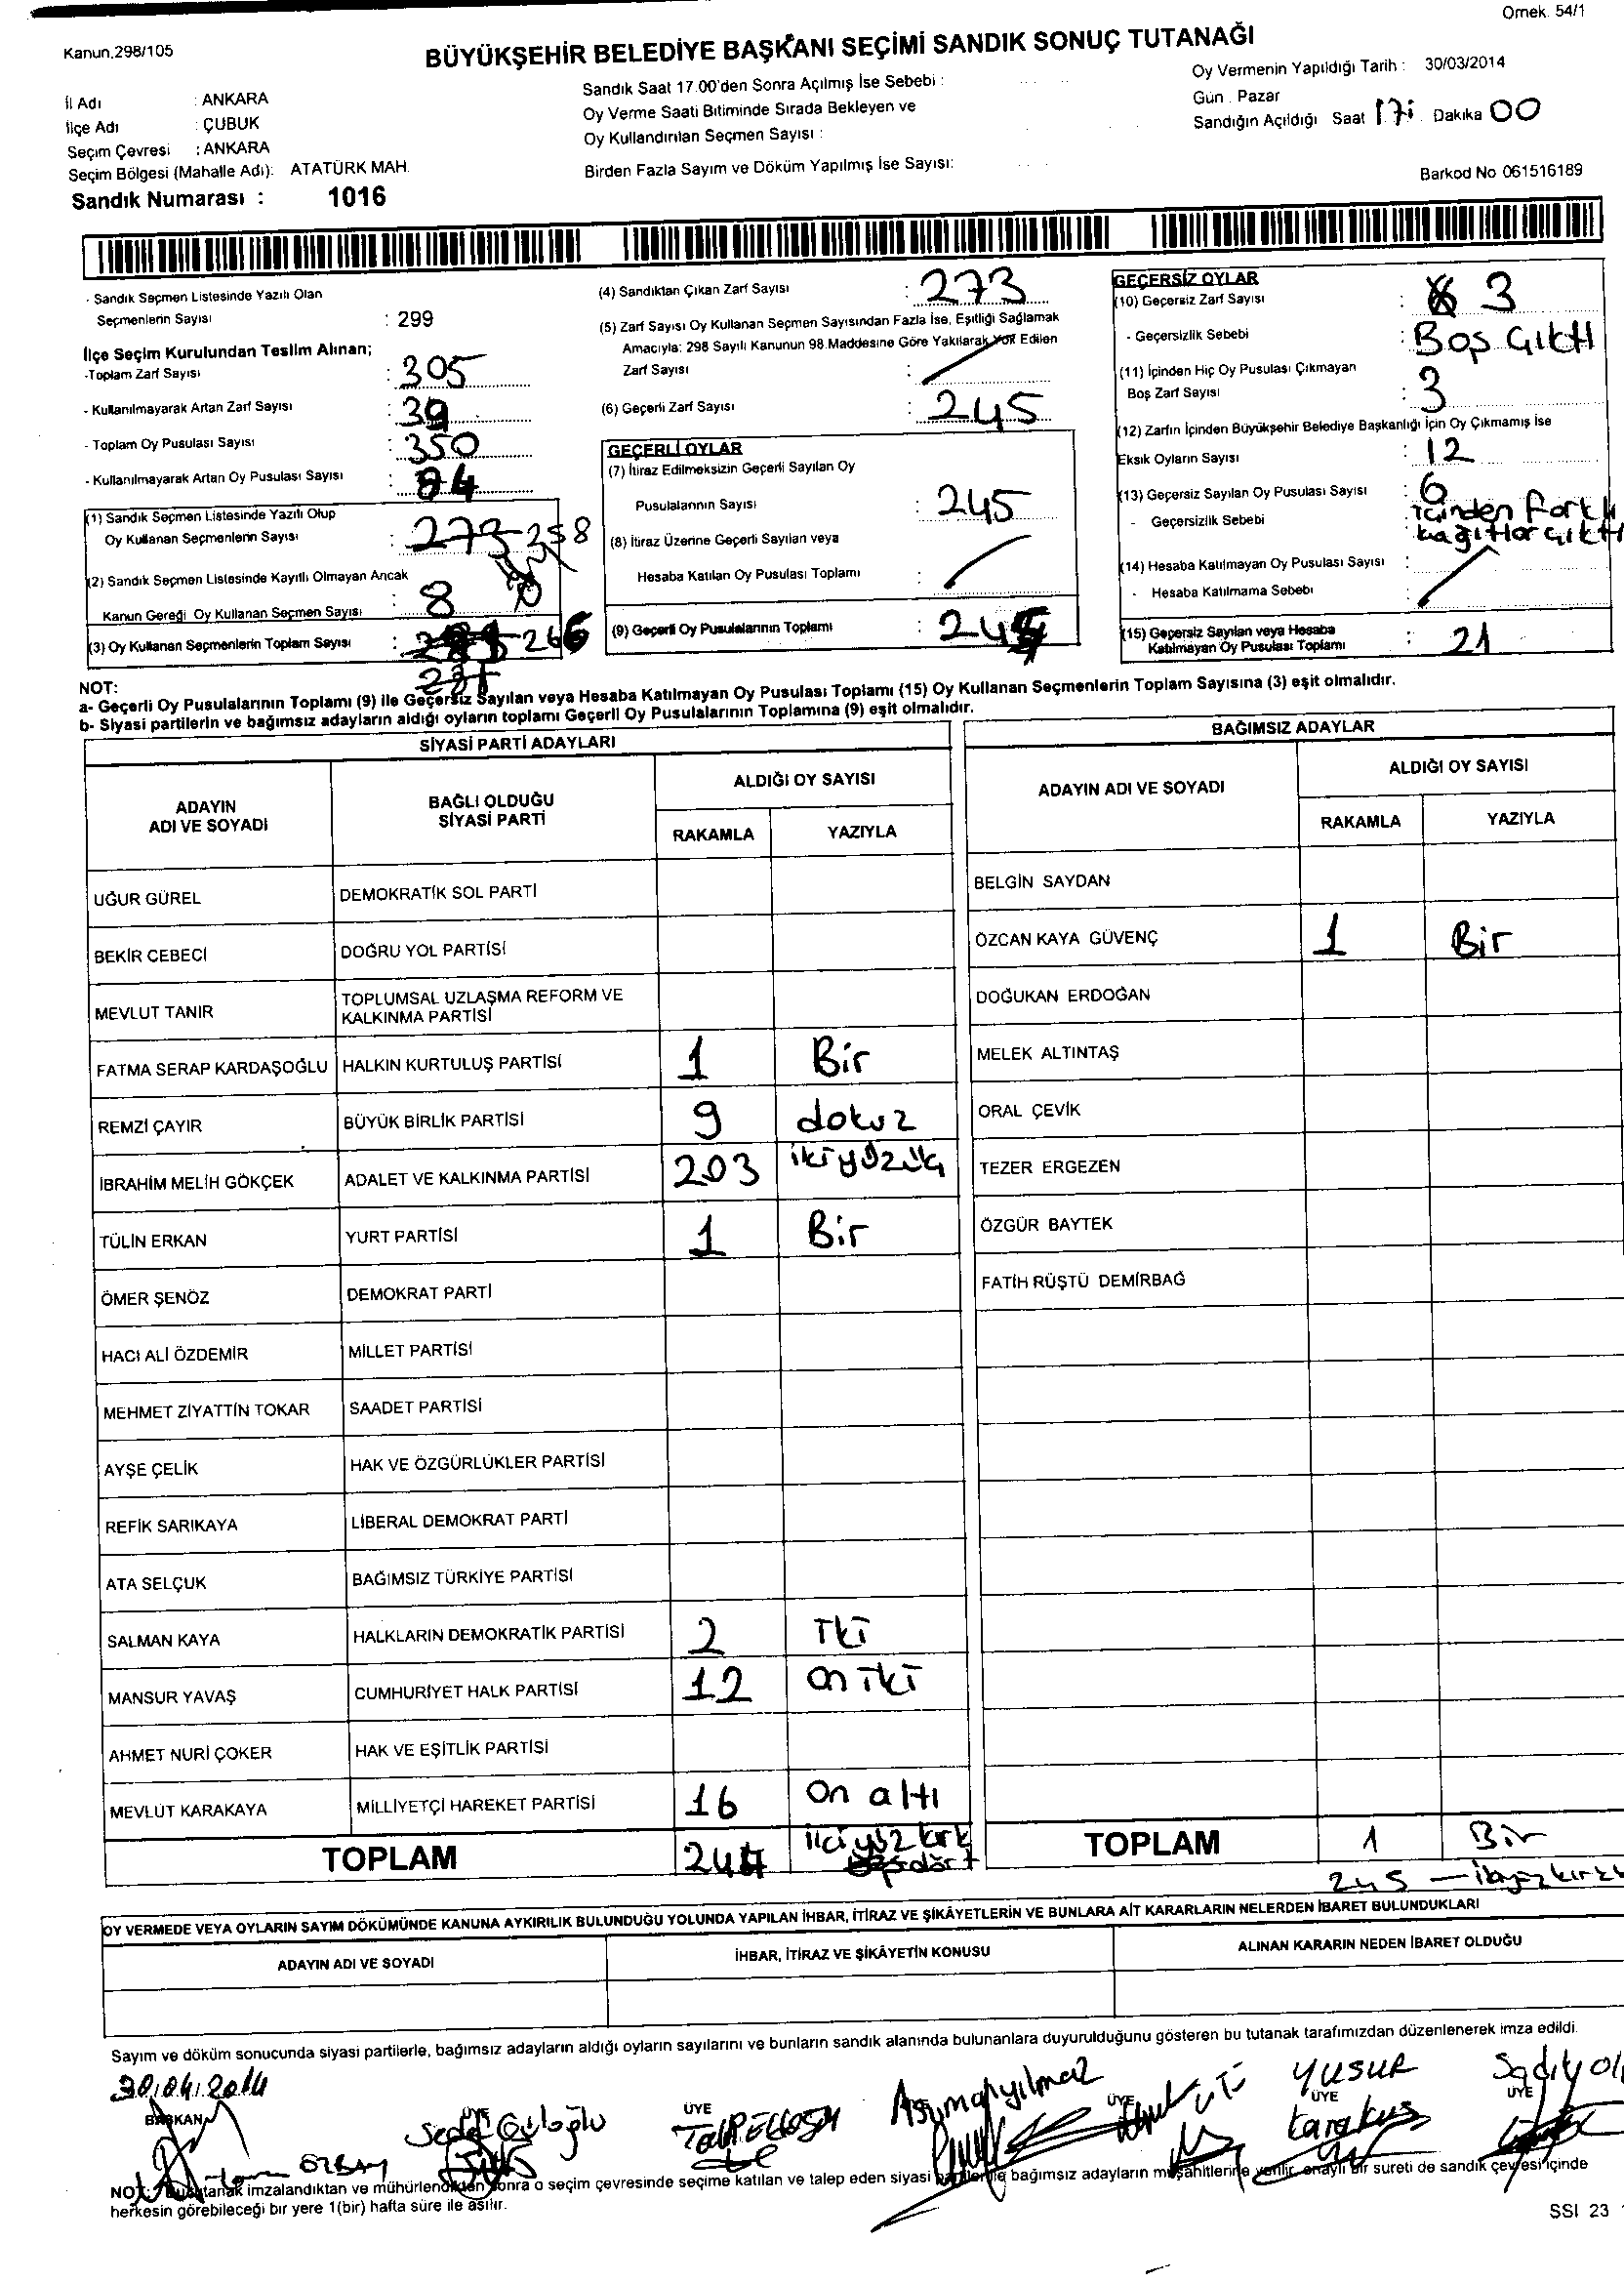 Örnek. 54/1
Kanun.298/105
BÜYÜKŞEHİR BELEDİYE BAŞKANI SEÇİMİ SANDIK SONUÇ TUTANAĞI
İl Adı : ANKARA
İlçe Adı : ÇUBUK
Seçim Çevresi : ANKARA
Seçim Bölgesi (Mahalle Adı): ATATÜRK MAH.
Sandık Numarası : 1016
Sandık Saat 17.00'den Sonra Açılmış İse Sebebi :
Oy Verme Saati Bitiminde Sırada Bekleyen ve
Oy Kullandırılan Seçmen Sayısı :
Birden Fazla Sayım ve Döküm Yapılmış İse Sayısı:
Oy Vermenin Yapıldığı Tarih : 30/03/2014
Gün : Pazar
Sandığın Açıldığı Saat 17: Dakika 00
Barkod No 061516189
- Sandık Seçmen Listesinde Yazılı Olan
Seçmenlerin Sayısı : 299
İlçe Seçim Kurulundan Teslim Alınan;
-Toplam Zarf Sayısı : 305
- Kullanılmayarak Artan Zarf Sayısı : 39
- Toplam Oy Pusulası Sayısı : 350
- Kullanılmayarak Artan Oy Pusulası Sayısı : 84
(1) Sandık Seçmen Listesinde Yazılı Olup
Oy Kullanan Seçmenlerin Sayısı : 273 258
(2) Sandık Seçmen Listesinde Kayıtlı Olmayan Ancak
Kanun Gereği Oy Kullanan Seçmen Sayısı : 8
(3) Oy Kullanan Seçmenlerin Toplam Sayısı : 266
(4) Sandıktan Çıkan Zarf Sayısı : 273
(5) Zarf Sayısı Oy Kullanan Seçmen Sayısından Fazla İse, Eşitliği Sağlamak
Amacıyla: 298 Sayılı Kanunun 98.Maddesine Göre Yakılarak Yok Edilen
Zarf Sayısı :
(6) Geçerli Zarf Sayısı : 245
GEÇERLİ OYLAR
(7) İtiraz Edilmeksizin Geçerli Sayılan Oy
Pusulalarının Sayısı : 245
(8) İtiraz Üzerine Geçerli Sayılan veya
Hesaba Katılan Oy Pusulası Toplamı :
(9) Geçerli Oy Pusulalarının Toplamı : 245
GEÇERSİZ OYLAR
(10) Geçersiz Zarf Sayısı : 3
- Geçersizlik Sebebi : Boş Çıktı
(11) İçinden Hiç Oy Pusulası Çıkmayan
Boş Zarf Sayısı : 3
(12) Zarfın İçinden Büyükşehir Belediye Başkanlığı İçin Oy Çıkmamış İse
Eksik Oyların Sayısı : 12
(13) Geçersiz Sayılan Oy Pusulası Sayısı : 6
- Geçersizlik Sebebi : içinden farklı
kağıtlar çıktı
(14) Hesaba Katılmayan Oy Pusulası Sayısı :
- Hesaba Katılmama Sebebi :
(15) Geçersiz Sayılan veya Hesaba
Katılmayan Oy Pusulası Toplamı : 21
NOT:
a- Geçerli Oy Pusulalarının Toplamı (9) ile Geçersiz Sayılan veya Hesaba Katılmayan Oy Pusulası Toplamı (15) Oy Kullanan Seçmenlerin Toplam Sayısına (3) eşit olmalıdır.
b- Siyasi partilerin ve bağımsız adayların aldığı oyların toplamı Geçerli Oy Pusulalarının Toplamına (9) eşit olmalıdır.
SİYASİ PARTİ ADAYLARI
ADAYIN ADI VE SOYADI BAĞLI OLDUĞU SİYASİ PARTİ ALDIĞI OY SAYISI
RAKAMLA YAZIYLA
UĞUR GÜREL DEMOKRATİK SOL PARTİ
BEKİR CEBECİ DOĞRU YOL PARTİSİ
MEVLUT TANIR TOPLUMSAL UZLAŞMA REFORM VE KALKINMA PARTİSİ
FATMA SERAP KARDAŞOĞLU HALKIN KURTULUŞ PARTİSİ 1 Bir
REMZİ ÇAYIR BÜYÜK BİRLİK PARTİSİ 9 dokuz
İBRAHİM MELİH GÖKÇEK ADALET VE KALKINMA PARTİSİ 203 ikiyüzüç
TÜLİN ERKAN YURT PARTİSİ 1 Bir
ÖMER ŞENÖZ DEMOKRAT PARTİ
HACI ALİ ÖZDEMİR MİLLET PARTİSİ
MEHMET ZİYATTİN TOKAR SAADET PARTİSİ
AYŞE ÇELİK HAK VE ÖZGÜRLÜKLER PARTİSİ
REFİK SARIKAYA LİBERAL DEMOKRAT PARTİ
ATA SELÇUK BAĞIMSIZ TÜRKİYE PARTİSİ
SALMAN KAYA HALKLARIN DEMOKRATİK PARTİSİ 2 İki
MANSUR YAVAŞ CUMHURİYET HALK PARTİSİ 12 on iki
AHMET NURİ ÇOKER HAK VE EŞİTLİK PARTİSİ
MEVLÜT KARAKAYA MİLLİYETÇİ HAREKET PARTİSİ 16 On altı
TOPLAM 244 ikiyüz kırk dört
BAĞIMSIZ ADAYLAR
ADAYIN ADI VE SOYADI ALDIĞI OY SAYISI
RAKAMLA YAZIYLA
BELGİN SAYDAN
ÖZCAN KAYA GÜVENÇ 1 Bir
DOĞUKAN ERDOĞAN
MELEK ALTINTAŞ
ORAL ÇEVİK
TEZER ERGEZEN
ÖZGÜR BAYTEK
FATİH RÜŞTÜ DEMİRBAĞ
TOPLAM 1 Bir
245
OY VERMEDE VEYA OYLARIN SAYIM DÖKÜMÜNDE KANUNA AYKIRILIK BULUNDUĞU YOLUNDA YAPILAN İHBAR, İTİRAZ VE ŞİKÂYETLERİN VE BUNLARA AİT KARARLARIN NELERDEN İBARET BULUNDUKLARI
ADAYIN ADI VE SOYADI İHBAR, İTİRAZ VE ŞİKÂYETİN KONUSU ALINAN KARARIN NEDEN İBARET OLDUĞU
Sayım ve döküm sonucunda siyasi partilerle, bağımsız adayların aldığı oyların sayılarını ve bunların sandık alanında bulunanlara duyurulduğunu gösteren bu tutanak tarafımızdan düzenlenerek imza edildi.
30.04.2014
BAŞKAN ÜYE ÜYE ÜYE ÜYE ÜYE
Yusuf
Karakuş
NOT: Bu tutanak imzalandıktan ve mühürlendikten sonra o seçim çevresinde seçime katılan ve talep eden siyasi partilerle bağımsız adayların müşahitlerine verilir, onaylı bir sureti de sandık çevresi içinde
herkesin görebileceği bir yere 1(bir) hafta süre ile asılır.
SSI 23